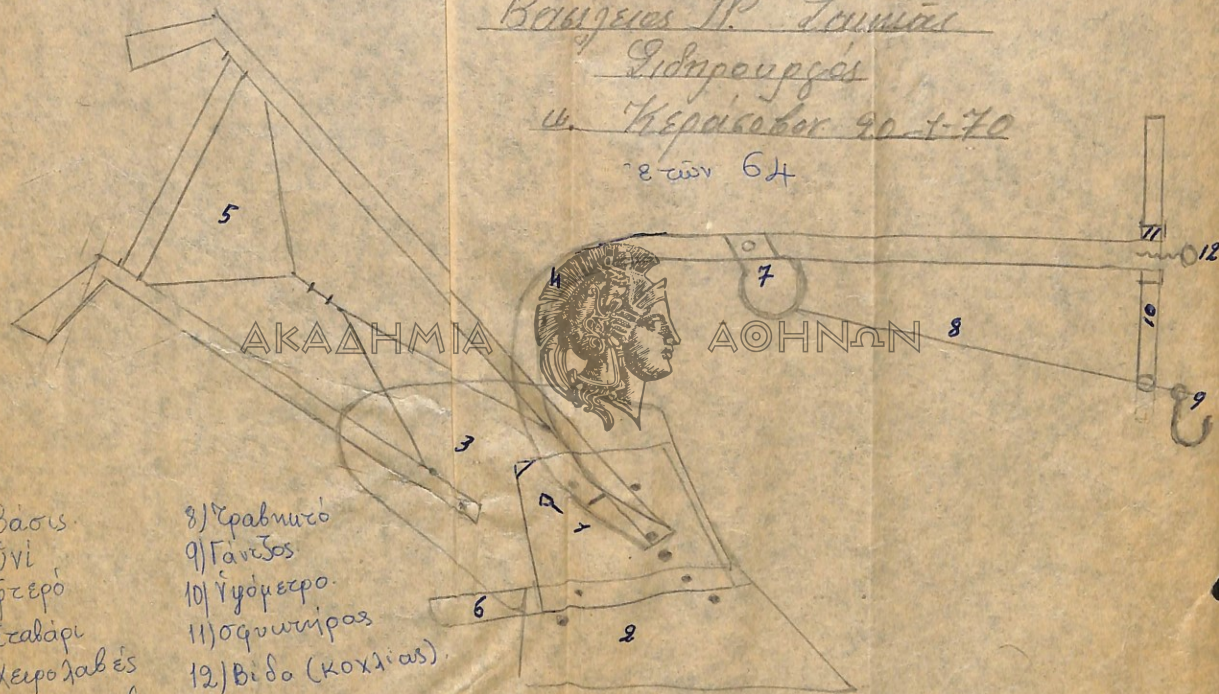 Σιδηρουργός
Κεράσοβον 20-1-70
ἐτῶν 64
5
4
7
11
12
10
8
9
3
1
6
2
ΑΚΑΔΗΜΙΑ ΑΘΗΝΩΝ
βάσις
υνί
φτερό
σταβάρι
χειρολαβές
8) Τραβηκτό
9) Γάντζος
10) Ὑψόμετρο
11) σφικτήρας
12) Βίδα (κοχλίας)